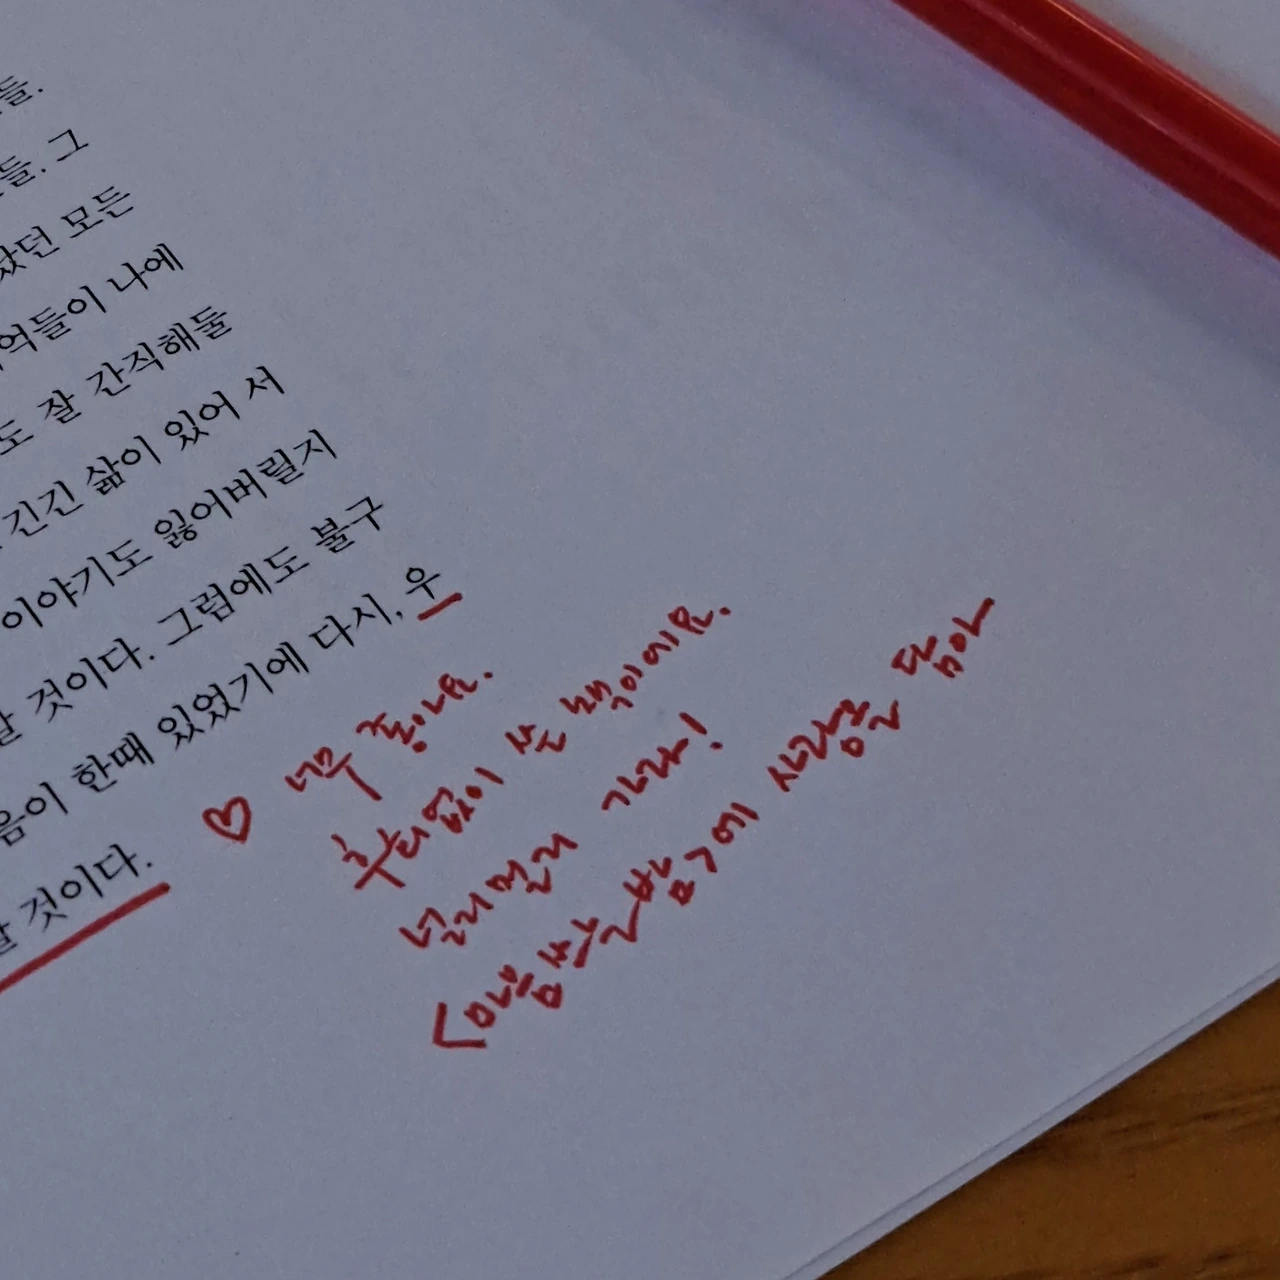 들.
들. 그
았던 모든
억들이 나에
도 잘 간직해둘
긴긴 삶이 있어 서
이야기도 잃어버릴지
할 것이다. 그럼에도 불구
음이 한때 있었기에 다시, 우
할 것이다.
♡ 너무 좋아요.
후회없이 쓴 책이에요.
널리멀리 가라!
<마음쓰는밤>에 사랑을 담아